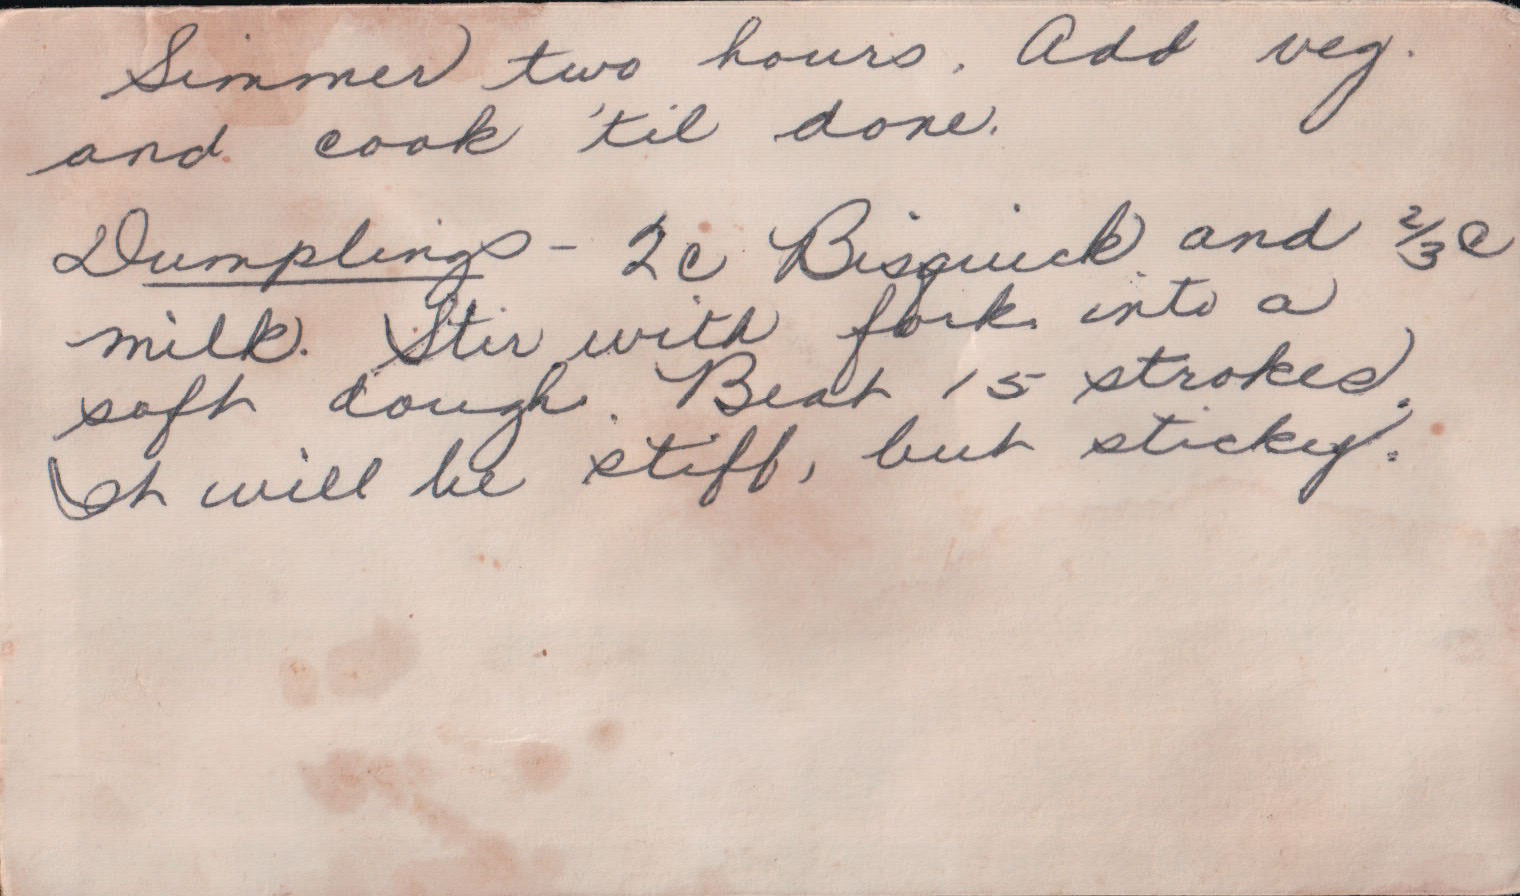 Simmer two hours. Add veg.
and cook 'til done.
Dumplings - 2c Bisquick and 2/3 c
milk. Stir with fork into a
soft dough. Beat 15 strokes.
It will be stiff, but stickey.